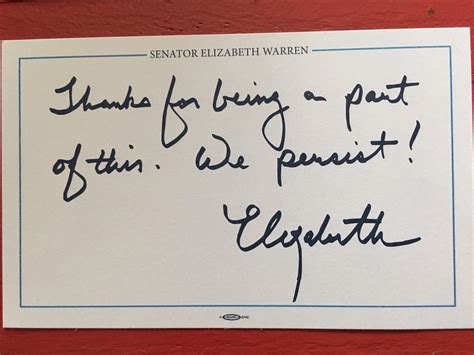 SENATOR ELIZABETH WARREN
Thanks for being a part
of this. We persist!
Elizabeth